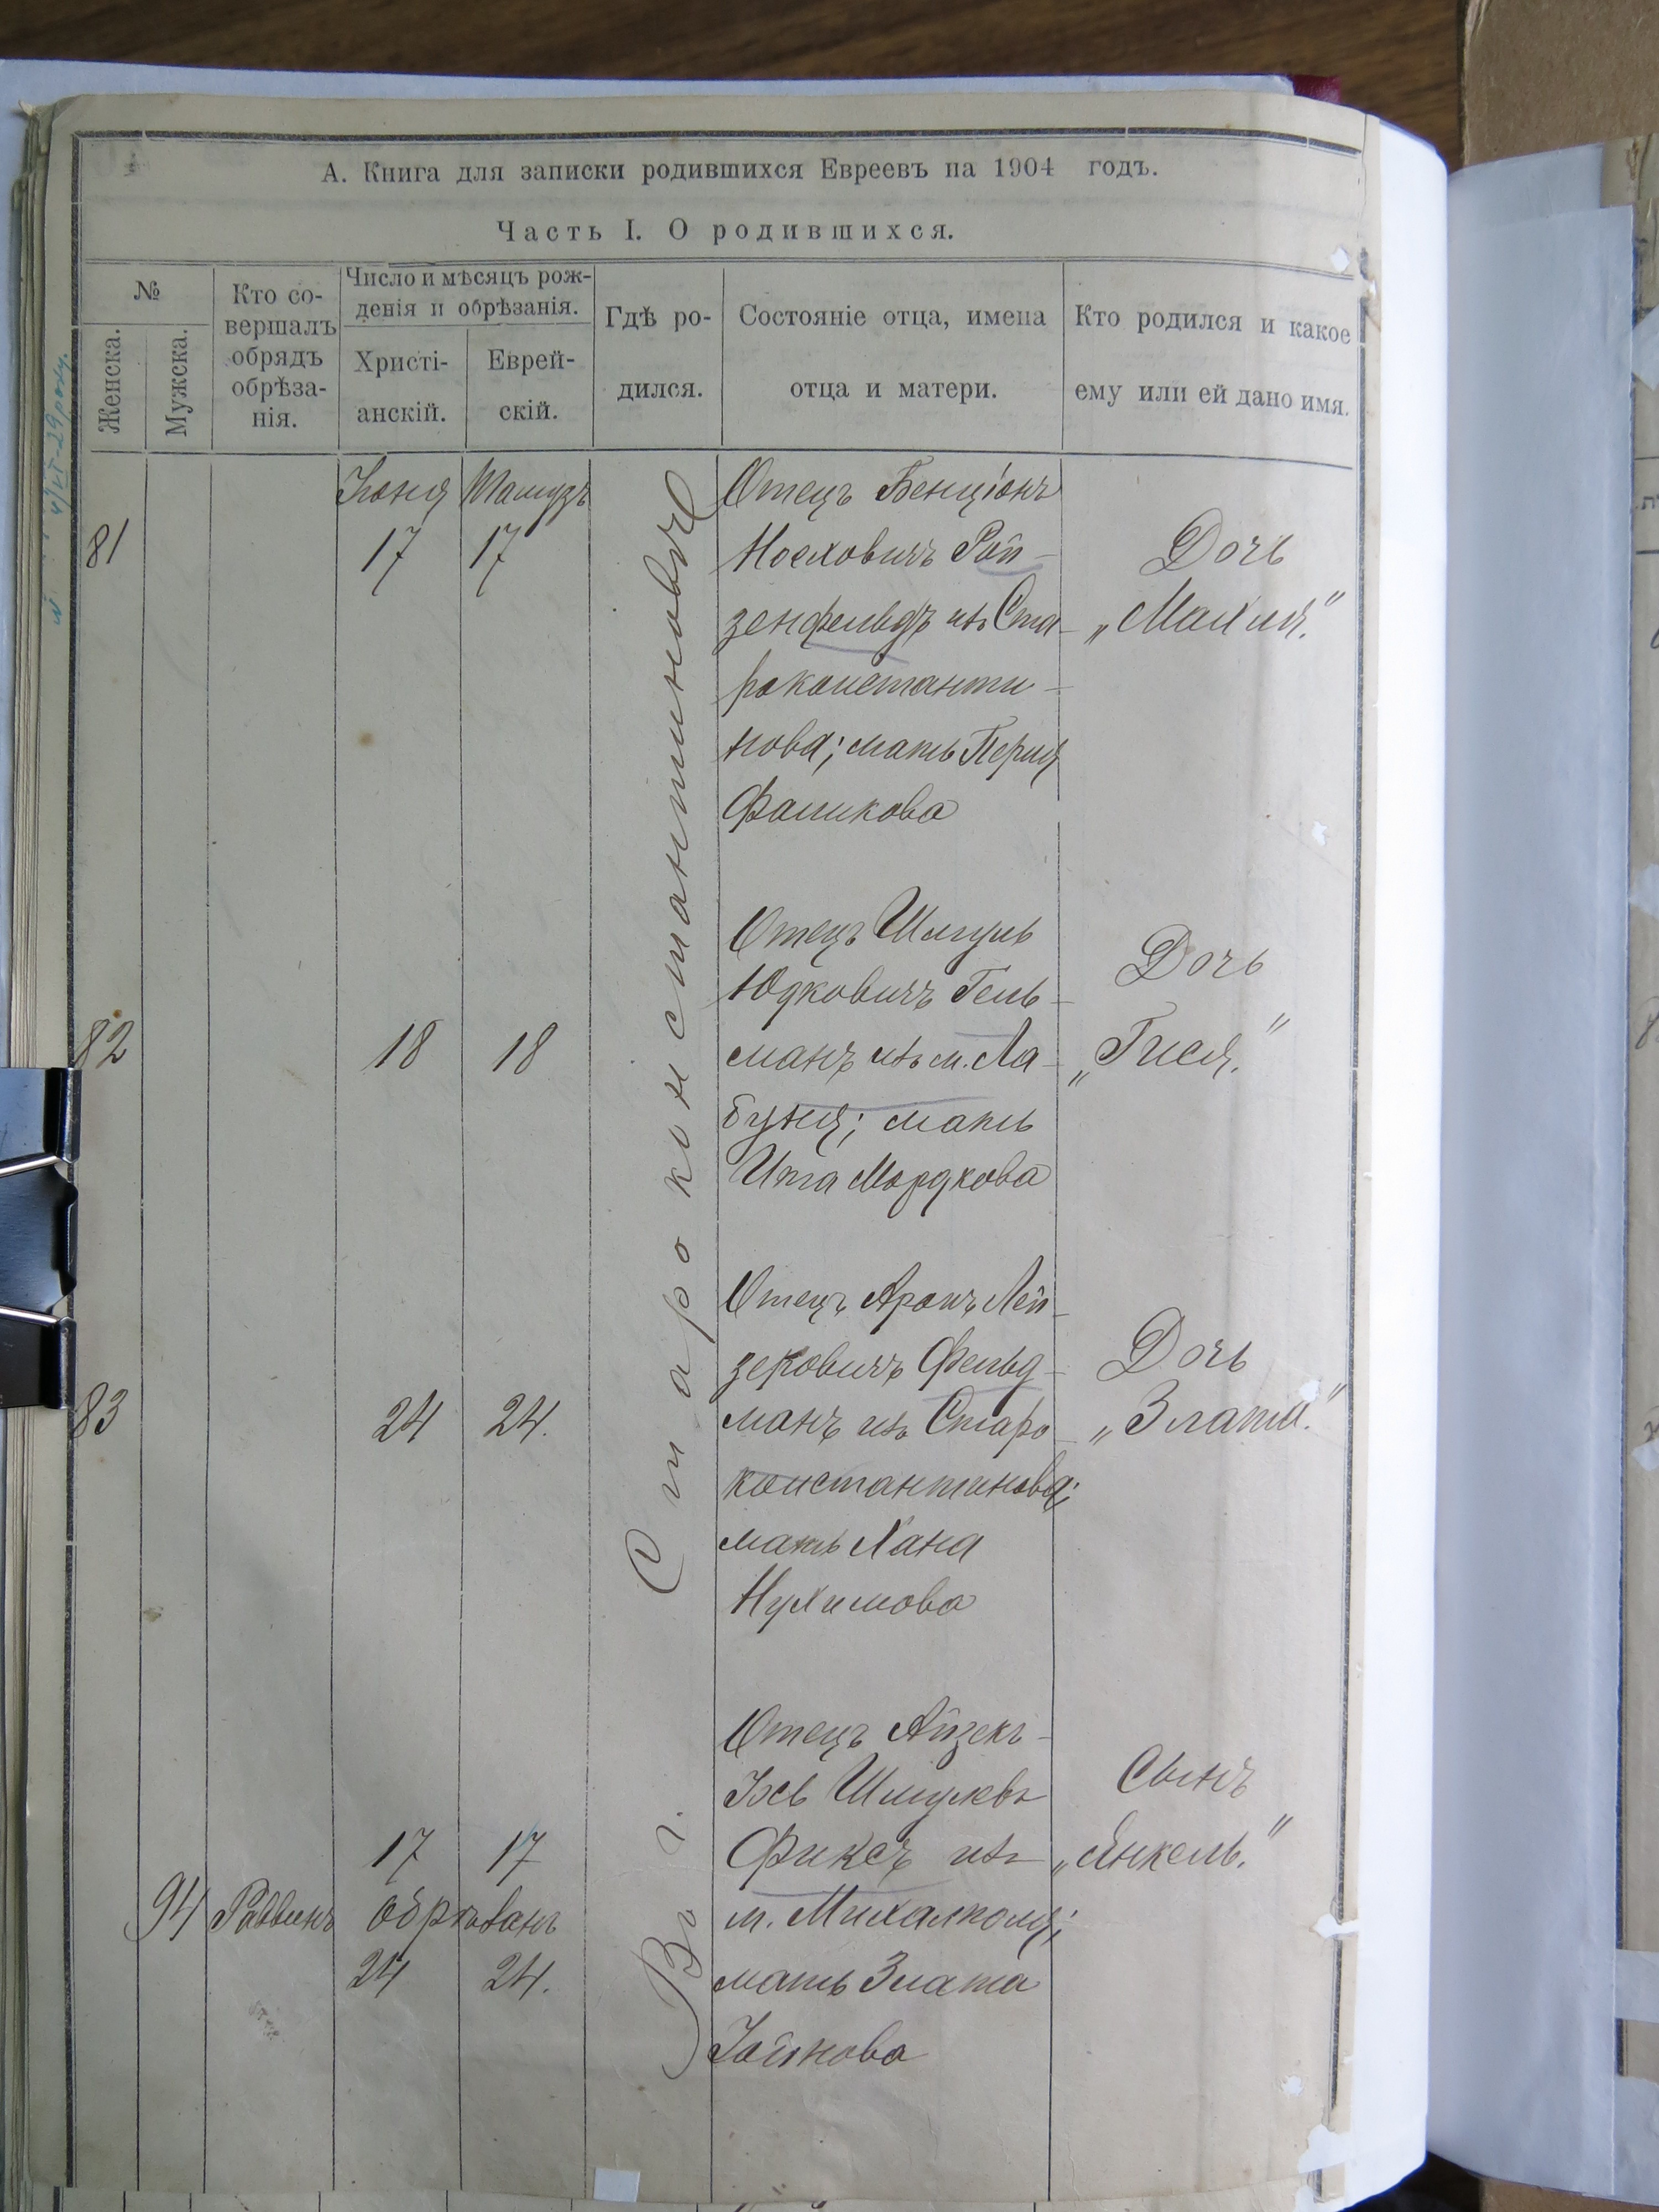 А. Книга для записки родившихся Евреевъ на 1904 годъ.
Часть I. О родившихся.
№
Женска.
Мужска.
Кто со-
вершалъ
обрядъ
обрѣза-
нія.
Число и мѣсяцъ рож-
денія и обрѣзанія.
Христі-
анскій.
Еврей-
скій.
Гдѣ ро-
дился.
Состояніе отца, имена
отца и матери.
Кто родился и какое
ему или ей дано имя.
Въ г. Староконстантиновѣ
Іюня Тамузъ
81 17 17
Отецъ Бенціонъ
Носховичъ Рой-
зенфельдъ изъ Ста-
роконстанти-
нова; мать Перля
Фаликова
Дочь
„Маня."
82 18 18
Отецъ Шмуль
Юдковичъ Гель-
манъ изъ м. Ла-
буня; мать
Ита Мордкова
Дочь
„Гися."
83 24 24.
Отецъ Аронъ Лей-
зеровичъ Фельд-
манъ изъ Старо-
константинова;
мать Хана
Нухимова
Дочь
„Злата."
94 Раввинъ
17 17
обрѣзанъ
24 24.
Отецъ Айзекъ-
Іосъ Шмулевъ
Фиксъ изъ
м. Михалполя;
мать Злата
Іойнова
Сынъ
„Янкель."